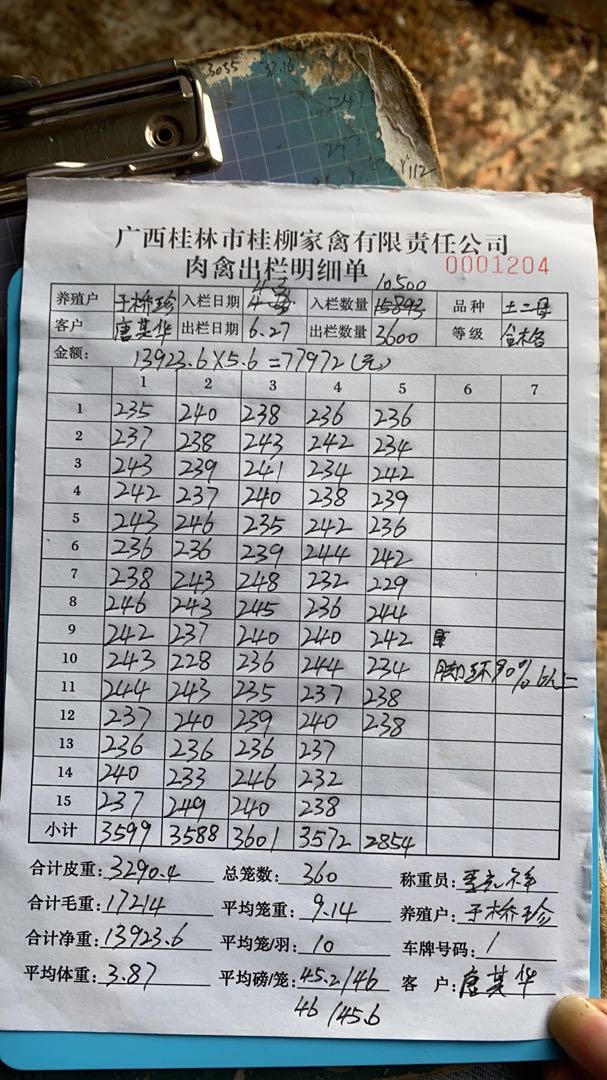 3055 32.16
广西桂林市桂柳家禽有限责任公司
肉禽出栏明细单 0001204
10500
养殖户 于桥珍 入栏日期 入栏数量 15893 品种 土二母
客户 唐其华 出栏日期 6.27 出栏数量 3600 等级 合格
金额: 13923.6×5.6=77972(元)
1 2 3 4 5 6 7
1 235 240 238 236 236
2 237 238 243 242 234
3 243 239 241 234 242
4 242 237 240 238 239
5 243 246 235 242 236
6 236 236 239 244 242
7 238 243 248 232 229
8 246 243 245 236 244
9 242 237 240 240 242
10 243 228 236 244 234 脚环90%以上
11 244 243 235 237 238
12 237 240 239 240 238
13 236 236 236 237
14 240 233 246 232
15 237 249 240 238
小计 3599 3588 3601 3572 2854
合计皮重: 3290.4 总笼数: 360 称重员:
合计毛重: 17214 平均笼重: 9.14 养殖户: 于桥珍
合计净重: 13923.6 平均笼/羽: 10 车牌号码: 1
平均体重: 3.87 平均磅/笼: 45.2/46 客 户: 唐其华
46/45.6